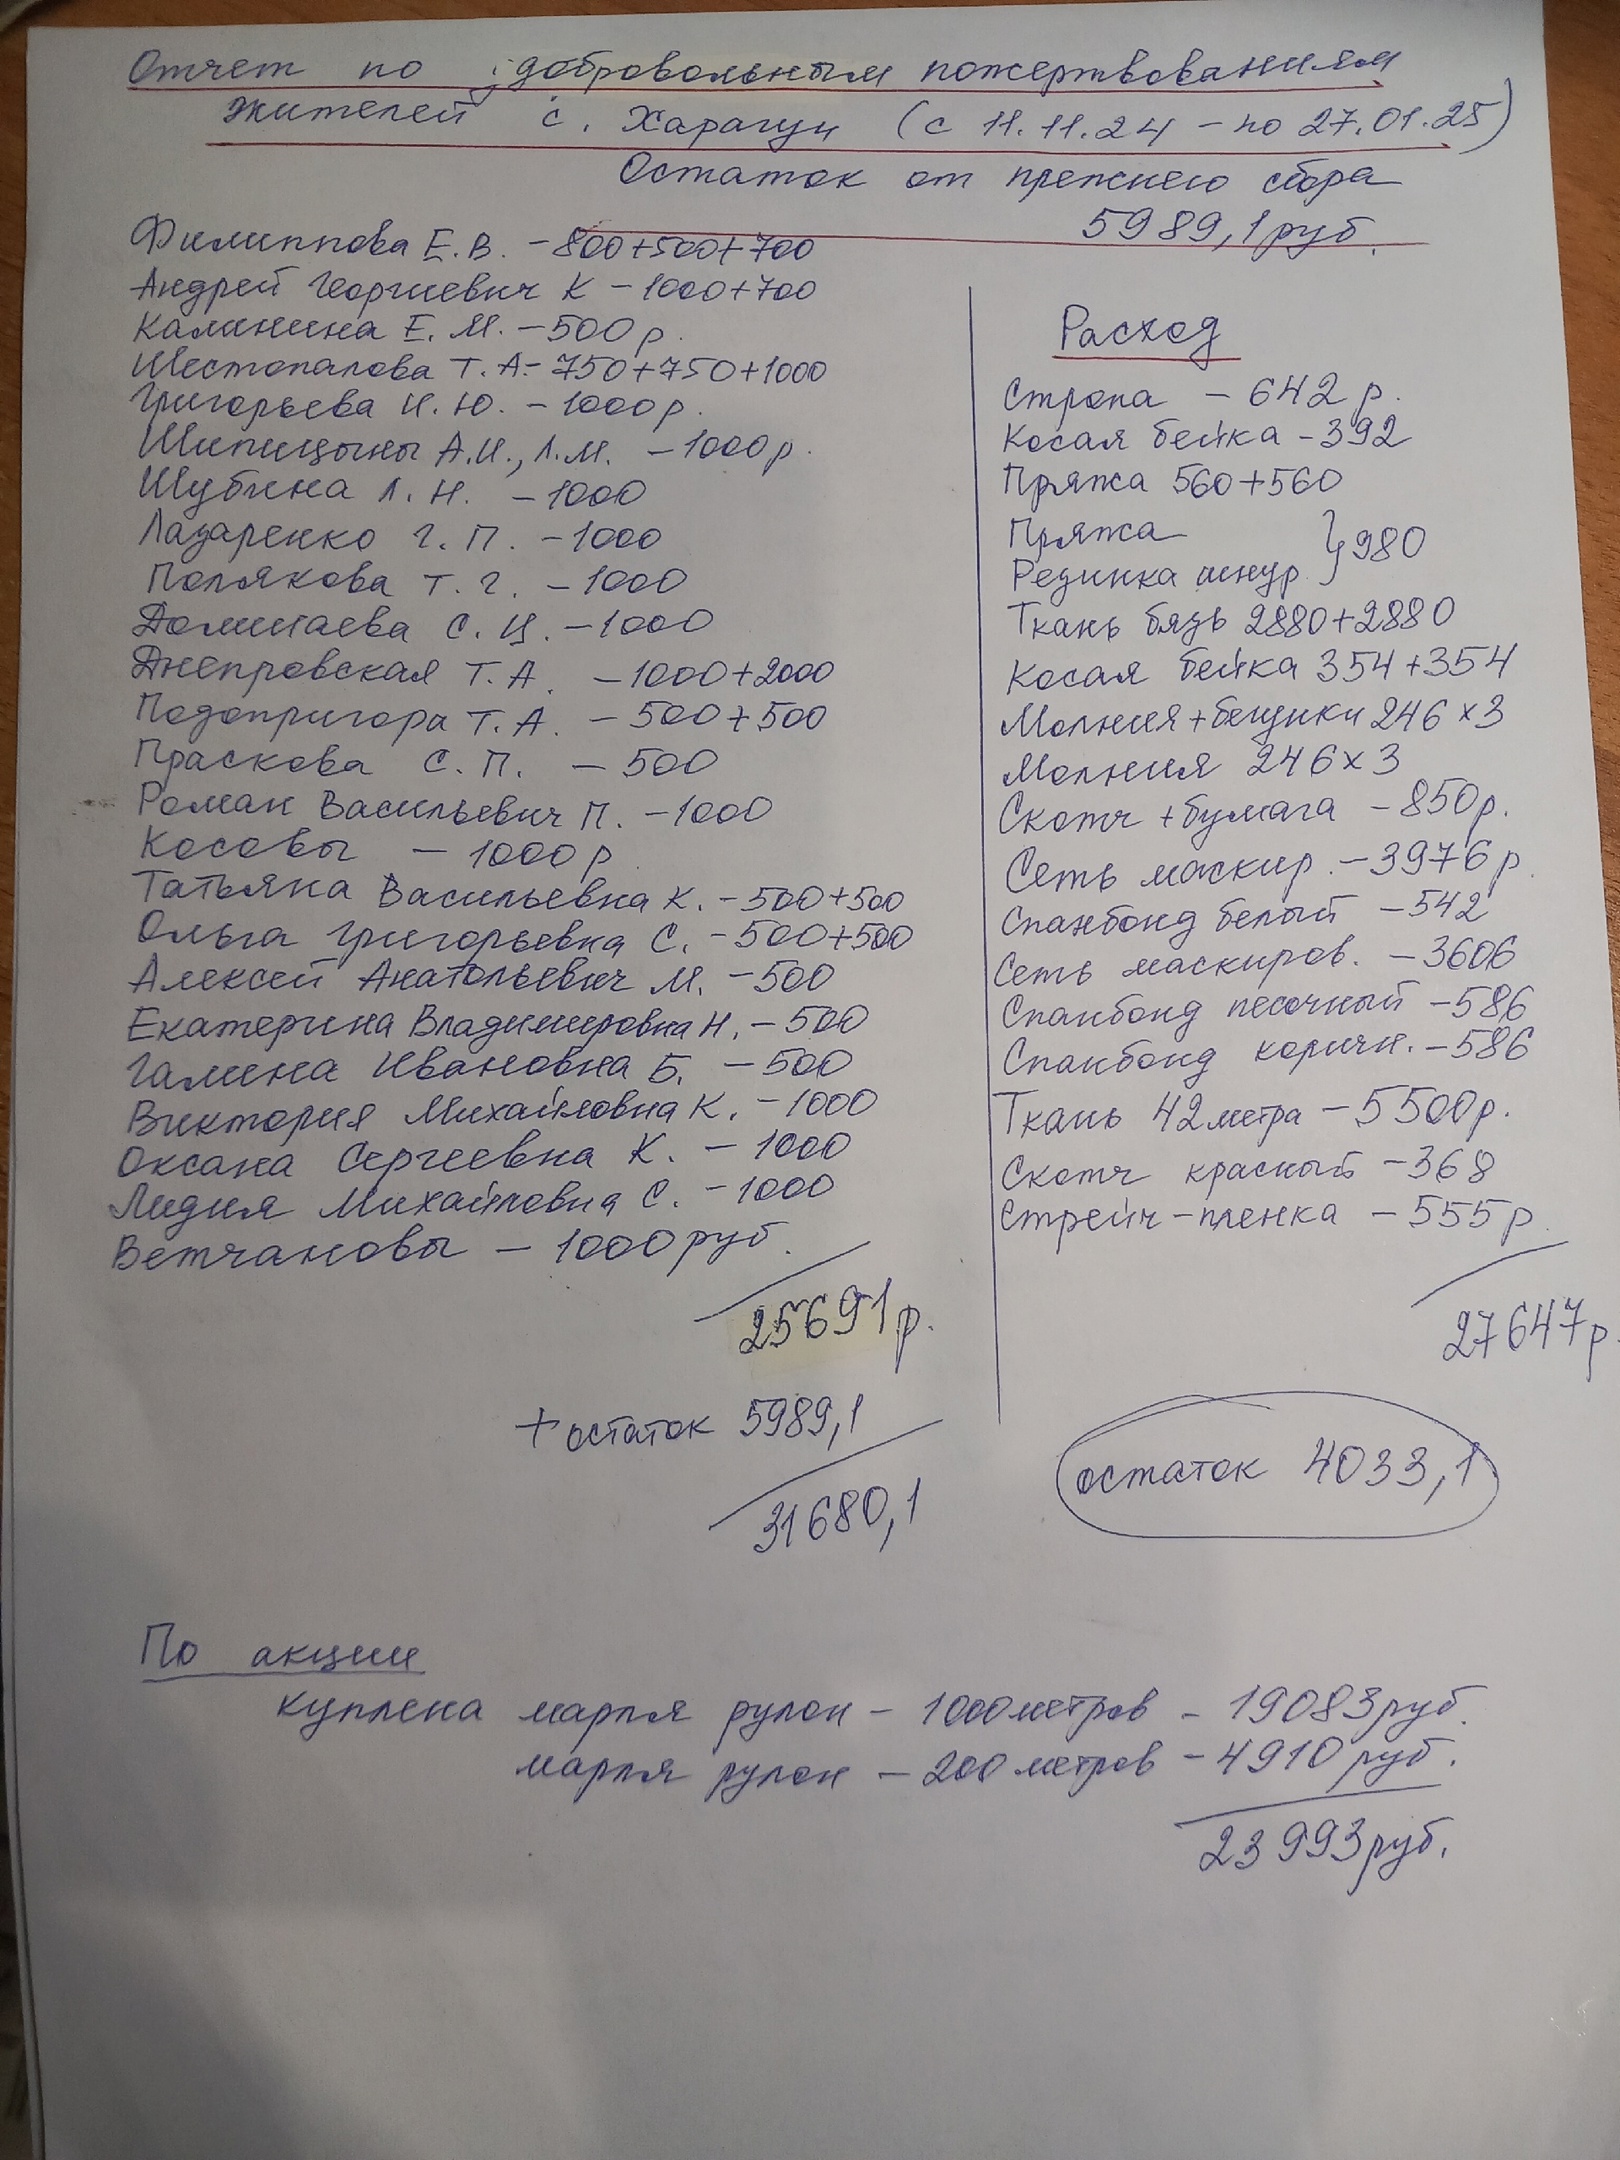 Отчет по добровольным пожертвованиям
жителей с. Харагун (с 11.11.24 – по 27.01.25)
Остаток от прежнего сбора
5989,1 руб.
Филиппова Е.В. – 800+500+700
Андрей Георгиевич К – 1000+700
Калинина Е. М. – 500 р.
Шестопалова Т. А – 750+750+1000
Григорьева И. Ю. – 1000 р.
Шипицыны А.И., Л.М. – 1000 р.
Шубина Л. Н. – 1000
Лазаренко Г. П. – 1000
Полякова Т. Г. – 1000
Доминаева С. Ц. – 1000
Днепровская Т. А. – 1000+2000
Подопригора Т. А. – 500+500
Праскова С. П. – 500
Роман Васильевич П. – 1000
Косовы – 1000 р
Татьяна Васильевна К. – 500+500
Ольга Григорьевна С. – 500+500
Алексей Анатольевич М. – 500
Екатерина Владимировна Н. – 500
Галина Ивановна Б. – 500
Виктория Михайловна К. – 1000
Оксана Сергеевна К. – 1000
Лидия Михайловна С. – 1000
Ветчановы – 1000 руб.
25691 р.
+ остаток 5989,1
31680,1
Расход
Стропа – 642 р.
Косая бейка – 392
Пряжа 560+560
Пряжа } 980
Резинка шнур.
Ткань бязь 2880+2880
Косая бейка 354+354
Молния+бегунки 246 х 3
Молния 246 х 3
Скотч + бумага – 850 р.
Сеть маскир. – 3976 р.
Спанбонд белый – 542
Сеть маскиров. – 3606
Спанбонд песочный – 586
Спанбонд коричн. – 586
Ткань 42 метра – 5500 р.
Скотч красный – 368
Стрейч-пленка – 555 р.
27647 р
остаток 4033,1
По акции
куплена марля рулон – 1000 метров – 19083 руб.
марля рулон – 200 метров – 4910 руб.
23993 руб.